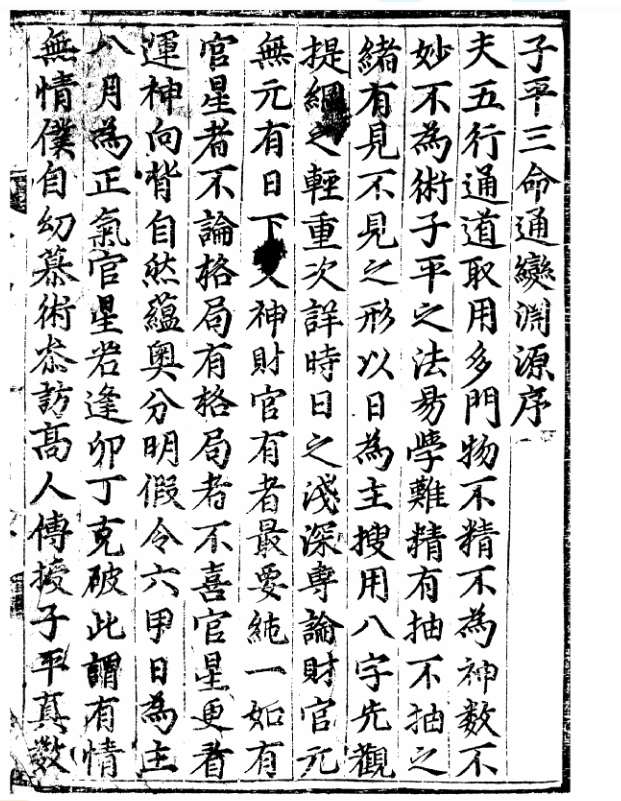 子平三命通變淵源序
夫五行通道取用多門物不精不為神數不
妙不為術子平之法易學難精有抽不抽之
緒有見不見之形以日為主搜用八字先觀
提綱之輕重次詳時日之淺深專論財官元
無元有日下神財官有者最要純一如有
官星者不論格局有格局者不喜官星更看
運神向背自然蘊奧分明假令六甲日為主
八月為正氣官星若逢卯丁克破此謂有情
無情僕自幼慕術叅訪高人傳授子平真數